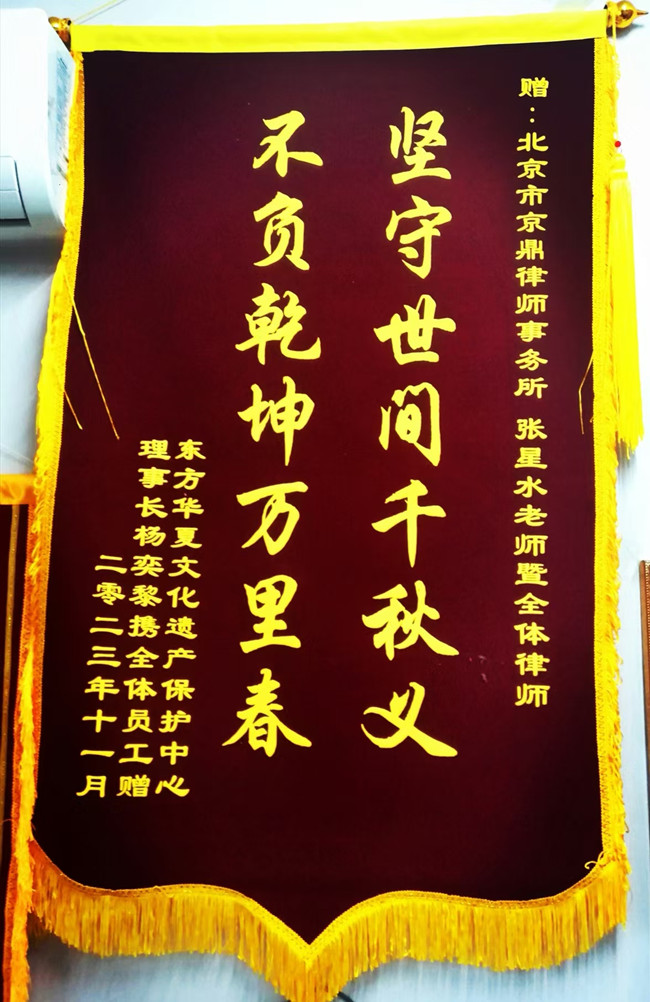 赠：北京市京鼎律师事务所 张星水老师暨全体律师
坚守世间千秋义
不负乾坤万里春
东方华夏文化遗产保护中心
理事长杨奕黎携全体员工赠
二零二三年十一月